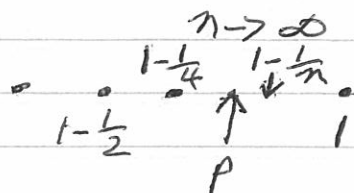 n -> ∞
1-1/4 1-1/n
1-1/2 ↑ 1
p